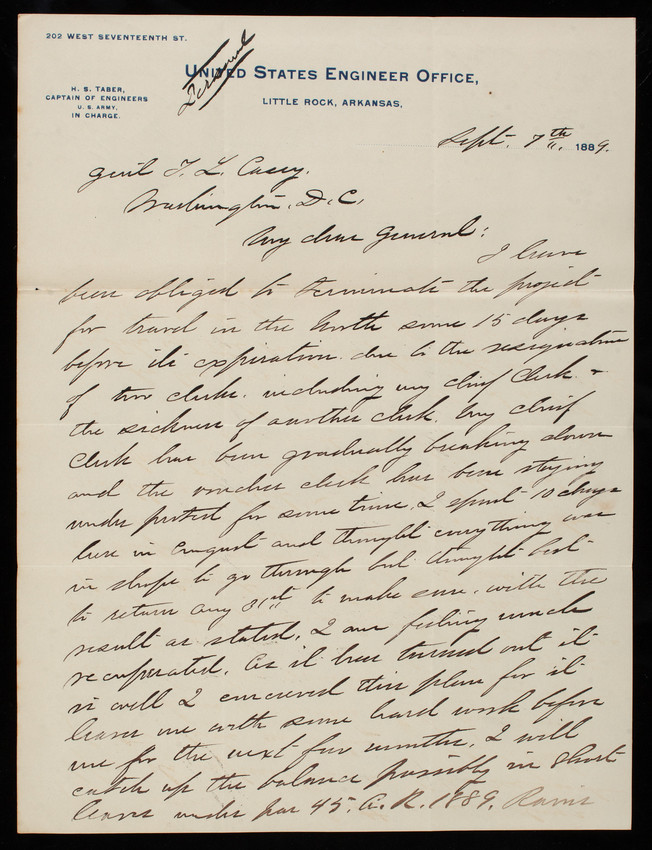 202 WEST SEVENTEENTH ST.
Personal
UNITED STATES ENGINEER OFFICE,
H. S. TABER,
CAPTAIN OF ENGINEERS
U. S. ARMY.
IN CHARGE.
LITTLE ROCK, ARKANSAS,
Sept. 7th 1889.
Genl T. L. Casey.
Washington, D.C.
My dear General:
I have
been obliged to terminate the project
for travel in the North some 15 days
before its expiration due to the resignation
of two clerks, including my chief clerk &
the sickness of another clerk. My chief
clerk has been gradually breaking down
and the voucher clerk has been staying
under protest for some time. I spent 10 days
here in August and thought everything was
in shape to go through but thought best
to return Aug 31st to make sure, with the
result as stated. I am feeling much
recuperated. As it has turned out it
is well I conceived this plan for it
leaves me with some hard work before
me for the next few months. I will
catch up the balance possibly in short
leaves under par 45. A. R. 1889.